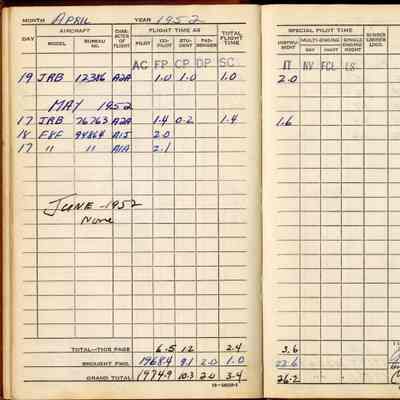 MONTH APRIL YEAR 1952
AIRCRAFT FLIGHT TIME AS SPECIAL PILOT TIME
DAY MODEL BUREAU NO. CHARACTER OF FLIGHT PILOT STUDENT PASSENGER TOTAL FLIGHT TIME INSTRUMENT MULTI-ENGINE DAY NIGHT SINGLE ENGINE NIGHT NUMBER
AC FP CP OP SC IT NV FCL LS
19 JRB 12386 A2A 1.0 1.0 1.0 2.0
MAY 1952
17 JRB 76763 A2A 1.4 0.2 1.4 1.6
18 F8F 94864 A1J 2.0
17 " " A1A 2.1
JUNE - 1952
None
TOTAL—THIS PAGE 6.5 1.2 2.4 3.6
BROUGHT FWD. 1968.4 9.1 2.0 1.0 22.6
GRAND TOTAL 1974.9 10.3 2.0 3.4 26.2